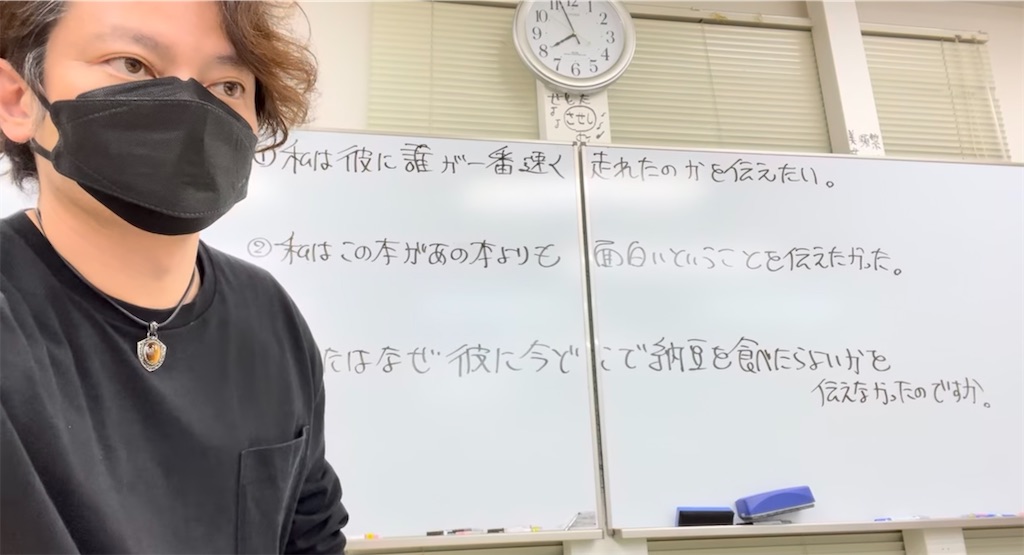 ① 私は彼に誰が一番速く走れたのかを伝えたい。
② 私はこの本があの本よりも面白いということを伝えたかった。
たはなぜ彼に今どこで納豆を食べたらよいかを
伝えなかったのですか。
11 12 1 2 3 4 5 6 7 8 9 10
させし